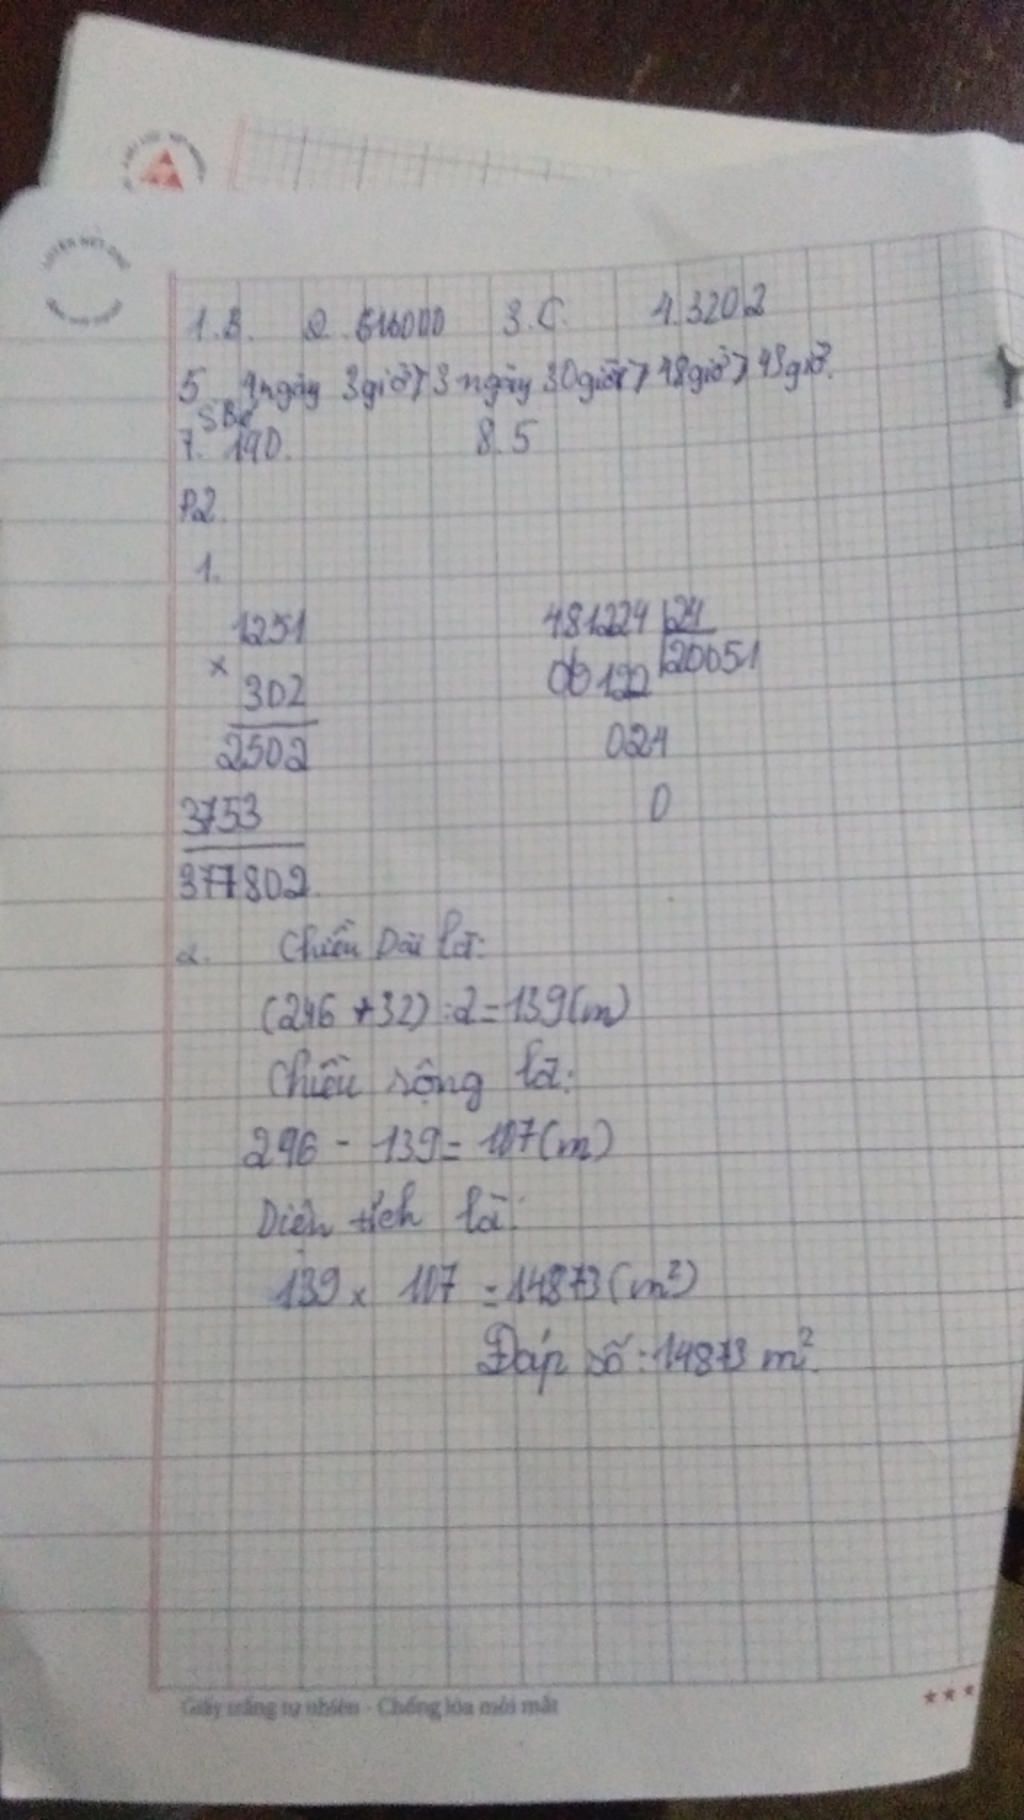 1.B. 2. 616000 3.C. 4.3202
5 4ngày 3giờ>3 ngày 30giờ>48giờ>43giờ.
SBé
7. 190. 8.5
P2.
1.
1251 481224 24
x 302 00122 20051
2502 024
3753 0
377802
2. Chiều Dài là:
(246 +32) :2=139(m)
Chiều rộng là:
246 - 139= 107(m)
Diện tích là:
139 x 107 =14873(m²)
Đáp số:14873 m².
Giấy trắng tự nhiên - Chống lóa mỏi mắt